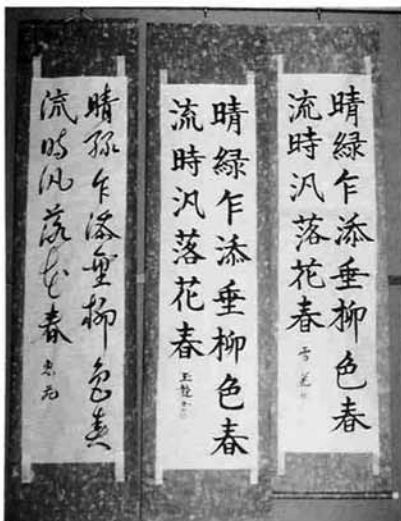 晴緑乍添垂柳色春
流時汎落花春
晴緑乍添垂柳色春
流時汎落花春
晴緑乍添垂柳色春
流時汎落花春